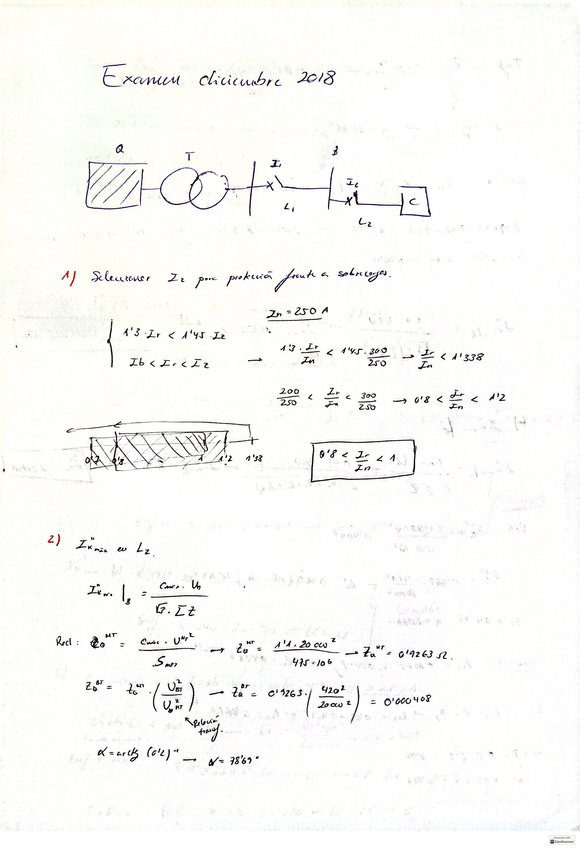 Examen diciembre 2018
Q
T
I₁
B
I₂
C
L₁
L₂
1) Seleccionar I₂ para protección frente a sobrecargas.
In = 250 A
1'3 · Ir < 1'45 Iz
Ib < Ir < Iz
→ 1'3 · Ir/In < 1'45 · 300/250 → Ir/In < 1'338
200/250 < Ir/In < 300/250 → 0'8 < Ir/In < 1'2
0'8 1 1'2 1'38
0'8 < Ir/In < 1
2) I"k min en L₂.
I"k min |B = Cmin · Un / √3 · ΣZ
Red: ZQ^MT = Cmax · U^MT² / → ZQ^MT = 1'1 · 20000² / 475·10⁶ → ZQ^MT = 0'9263 Ω.
ZQ^BT = ZQ^MT · (U²BT / U²MT) → ZQ^BT = 0'9263 · (420² / 20000²) = 0'000408
Relación
α = arctg (0'2)⁻¹ → α = 78'69°
CamScanner